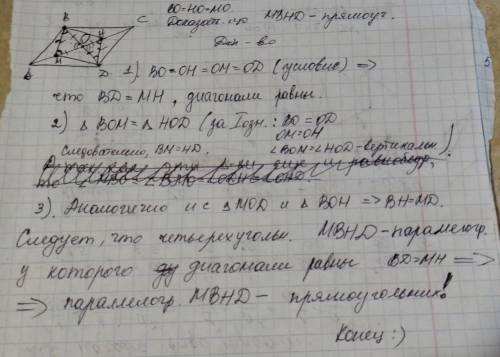 B
C
BO=HO=MO.
Доказать, що MBHD - прямоуг.
Док-во
D
1) BO=OH=OM=OD (условие) =>
что BD=MH, диагонали равны.
2) △ BOM = △ HOD (за I озн.: BO=OD
OM=OH
∠BOM=∠HOD - вертикальн.)
Следовательно, BM=HD.
3). Аналогично и с △MOD и △BOH => BH=MD.
Следует, что четырехугольн. MBHD - паралелогр.
у которого диагонали равны BD=MH =>
=> параллелогр. MBHD - прямоугольник!
Конец :)